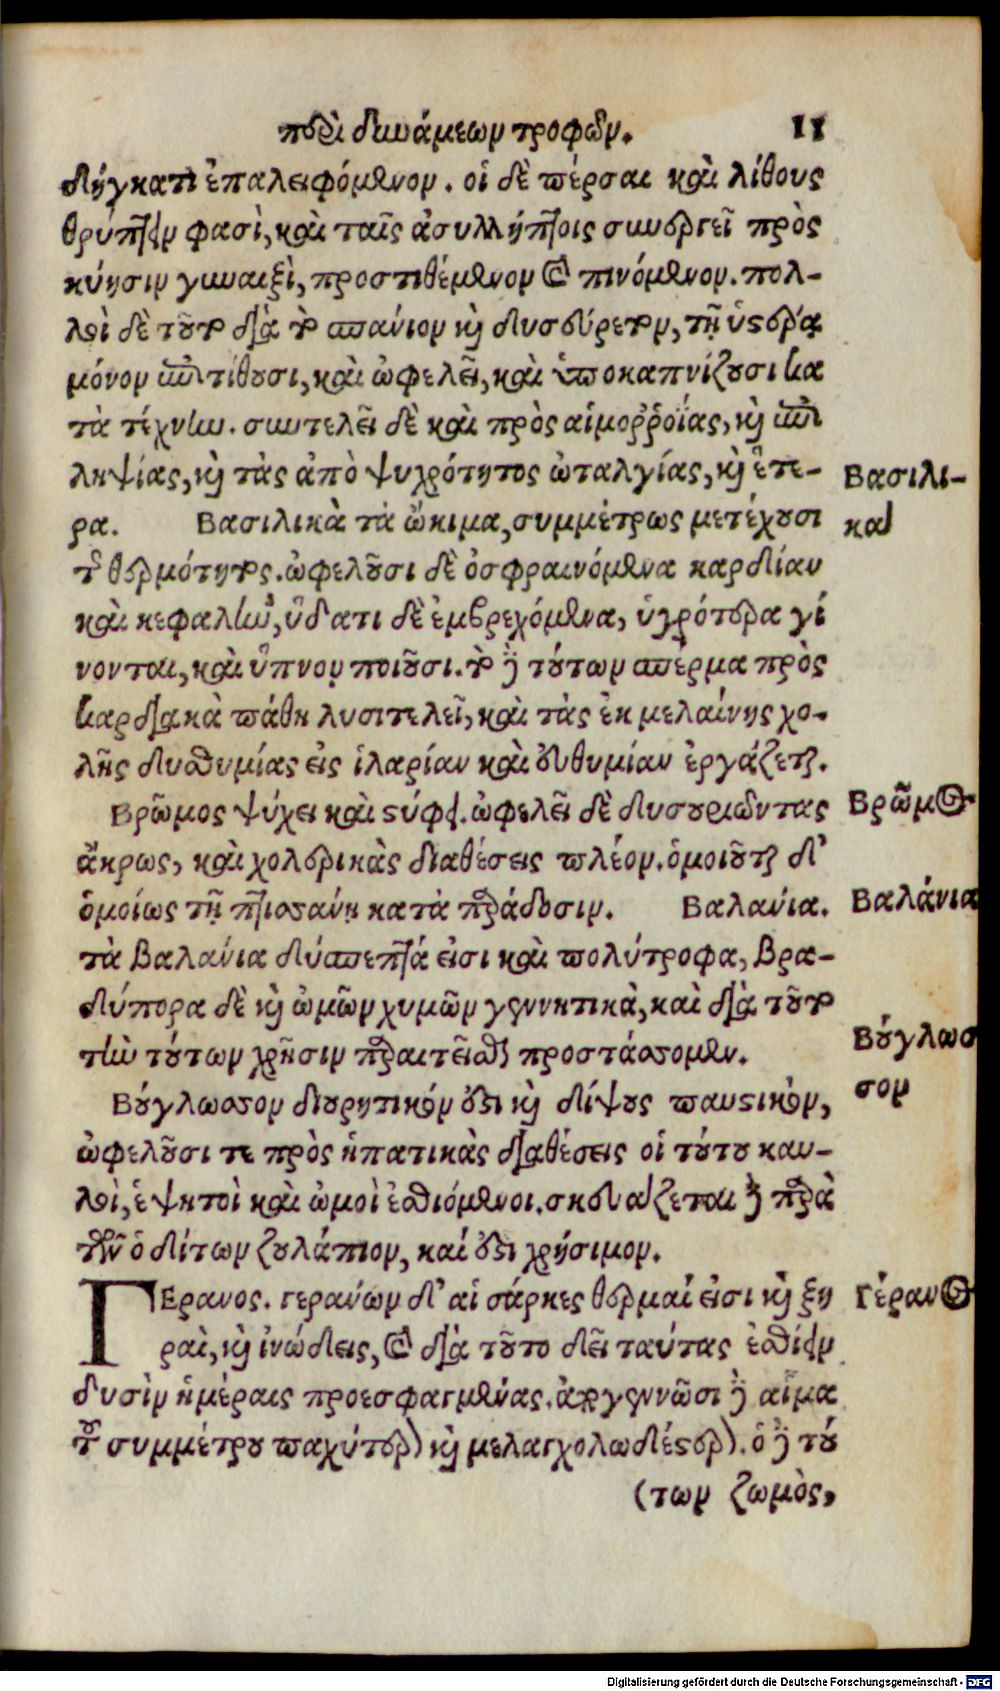 περὶ δυνάμεων τροφῶν. 11
δήγματι ἐπαλειφόμενον. οἱ δὲ πέρσαι καὶ λίθους
θρύπτειν φασὶ, καὶ ταῖς ἀσυλλήπτοις συνεργεῖ πρὸς
κύησιν γυναιξὶ, προστιθέμενον καὶ πινόμενον. πολ-
λοὶ δὲ τοῦτο διὰ τὸ σπάνιον καὶ δυσεύρετον, τῇ ὑστέρᾳ
μόνον ἐπιτίθουσι, καὶ ὠφελεῖ, καὶ ὑποκαπνίζουσι κα
τὰ τέχνην. συντελεῖ δὲ καὶ πρὸς αἱμοῤῥοΐας, καὶ ἐπι
ληψίας, καὶ τὰς ἀπὸ ψυχρότητος ὠταλγίας, καὶ ἕτε-
ρα. Βασιλικὰ τὰ ὤκιμα, συμμέτρως μετέχουσι
τῆς θερμότητος. ὠφελοῦσι δὲ ὀσφραινόμενα καρδίαν
καὶ κεφαλὴν, ὕδατι δὲ ἐμβρεχόμενα, ὑγρότερα γί
νονται, καὶ ὕπνον ποιοῦσι. τὸ δὲ τούτων σπέρμα πρὸς
καρδιακὰ πάθη λυσιτελεῖ, καὶ τὰς ἐκ μελαίνης χο-
λῆς δυσθυμίας εἰς ἱλαρίαν καὶ εὐθυμίαν ἐργάζεται.
Βρῶμος ψύχει καὶ στύφει. ὠφελεῖ δὲ δυσουριῶντας
ἄκρως, καὶ χολερικὰς διαθέσεις πλέον. ὁμοιοῦται δ'
ὁμοίως τῇ πτισσάνῃ κατὰ παράδοσιν. Βαλανία.
τὰ βαλάνια δύσπεπτά εἰσι καὶ πολύτροφα, βρα-
δύπορα δὲ καὶ ὠμῶν χυμῶν γεννητικὰ, καὶ διὰ τοῦτο
τὴν τούτων χρῆσιν παραιτεῖσθαι προστάσσομεν.
Βούγλωσσον διουρητικόν ἐστι καὶ δίψους παυστικὸν,
ὠφελοῦσι τε πρὸς ἡπατικὰς διαθέσεις οἱ τούτου καυ-
λοὶ, ἑψητοὶ καὶ ὠμοὶ ἐσθιόμενοι. σκευάζεται δὲ παρὰ
τῶν ὁ δίτων ζουλάπιον, καί ἐστι χρήσιμον.
ΓΕρανος. γεράνων δ' αἱ σάρκες θερμαί εἰσι καὶ ξη
ραὶ, καὶ ἰνώδεις, καὶ διὰ τοῦτο δεῖ ταύτας ἐσθίειν
δυσὶν ἡμέραις προεσφαγμένας. ἀπογεννῶσι δὲ αἷμα
τοῦ συμμέτρου παχύτερον καὶ μελαγχολωδέστερον. ὁ δὲ τού
(των ζωμὸς,
Βασιλι-
καὶ
Βρῶμος
Βαλάνια
Βούγλωσ
σον
Γέρανος
Digitalisierung gefördert durch die Deutsche Forschungsgemeinschaft - DFG